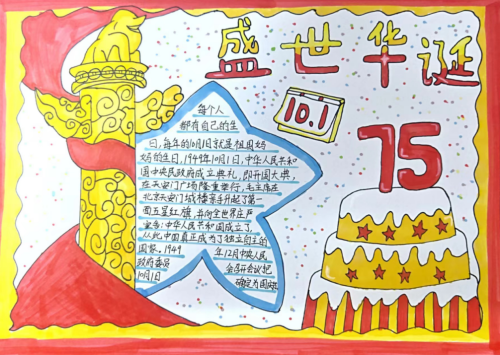 盛世华诞
10.1
75
每个人
都有自己的生
日,每年的10月1日就是祖国妈
妈的生日,1949年10月1日,中华人民共和
国中央民政府成立典礼,即开国大典,
在天安门广场隆重举行,毛主席在
北京天安门城楼亲手升起了第一
面五星红旗,并向全世界庄严
宣告:中华人民共和国成立了,
从此,中国真正成为了独立自主的
国家。1949 年12月中央人民
政府委员 会召开会议把
10月1日 确定为国庆